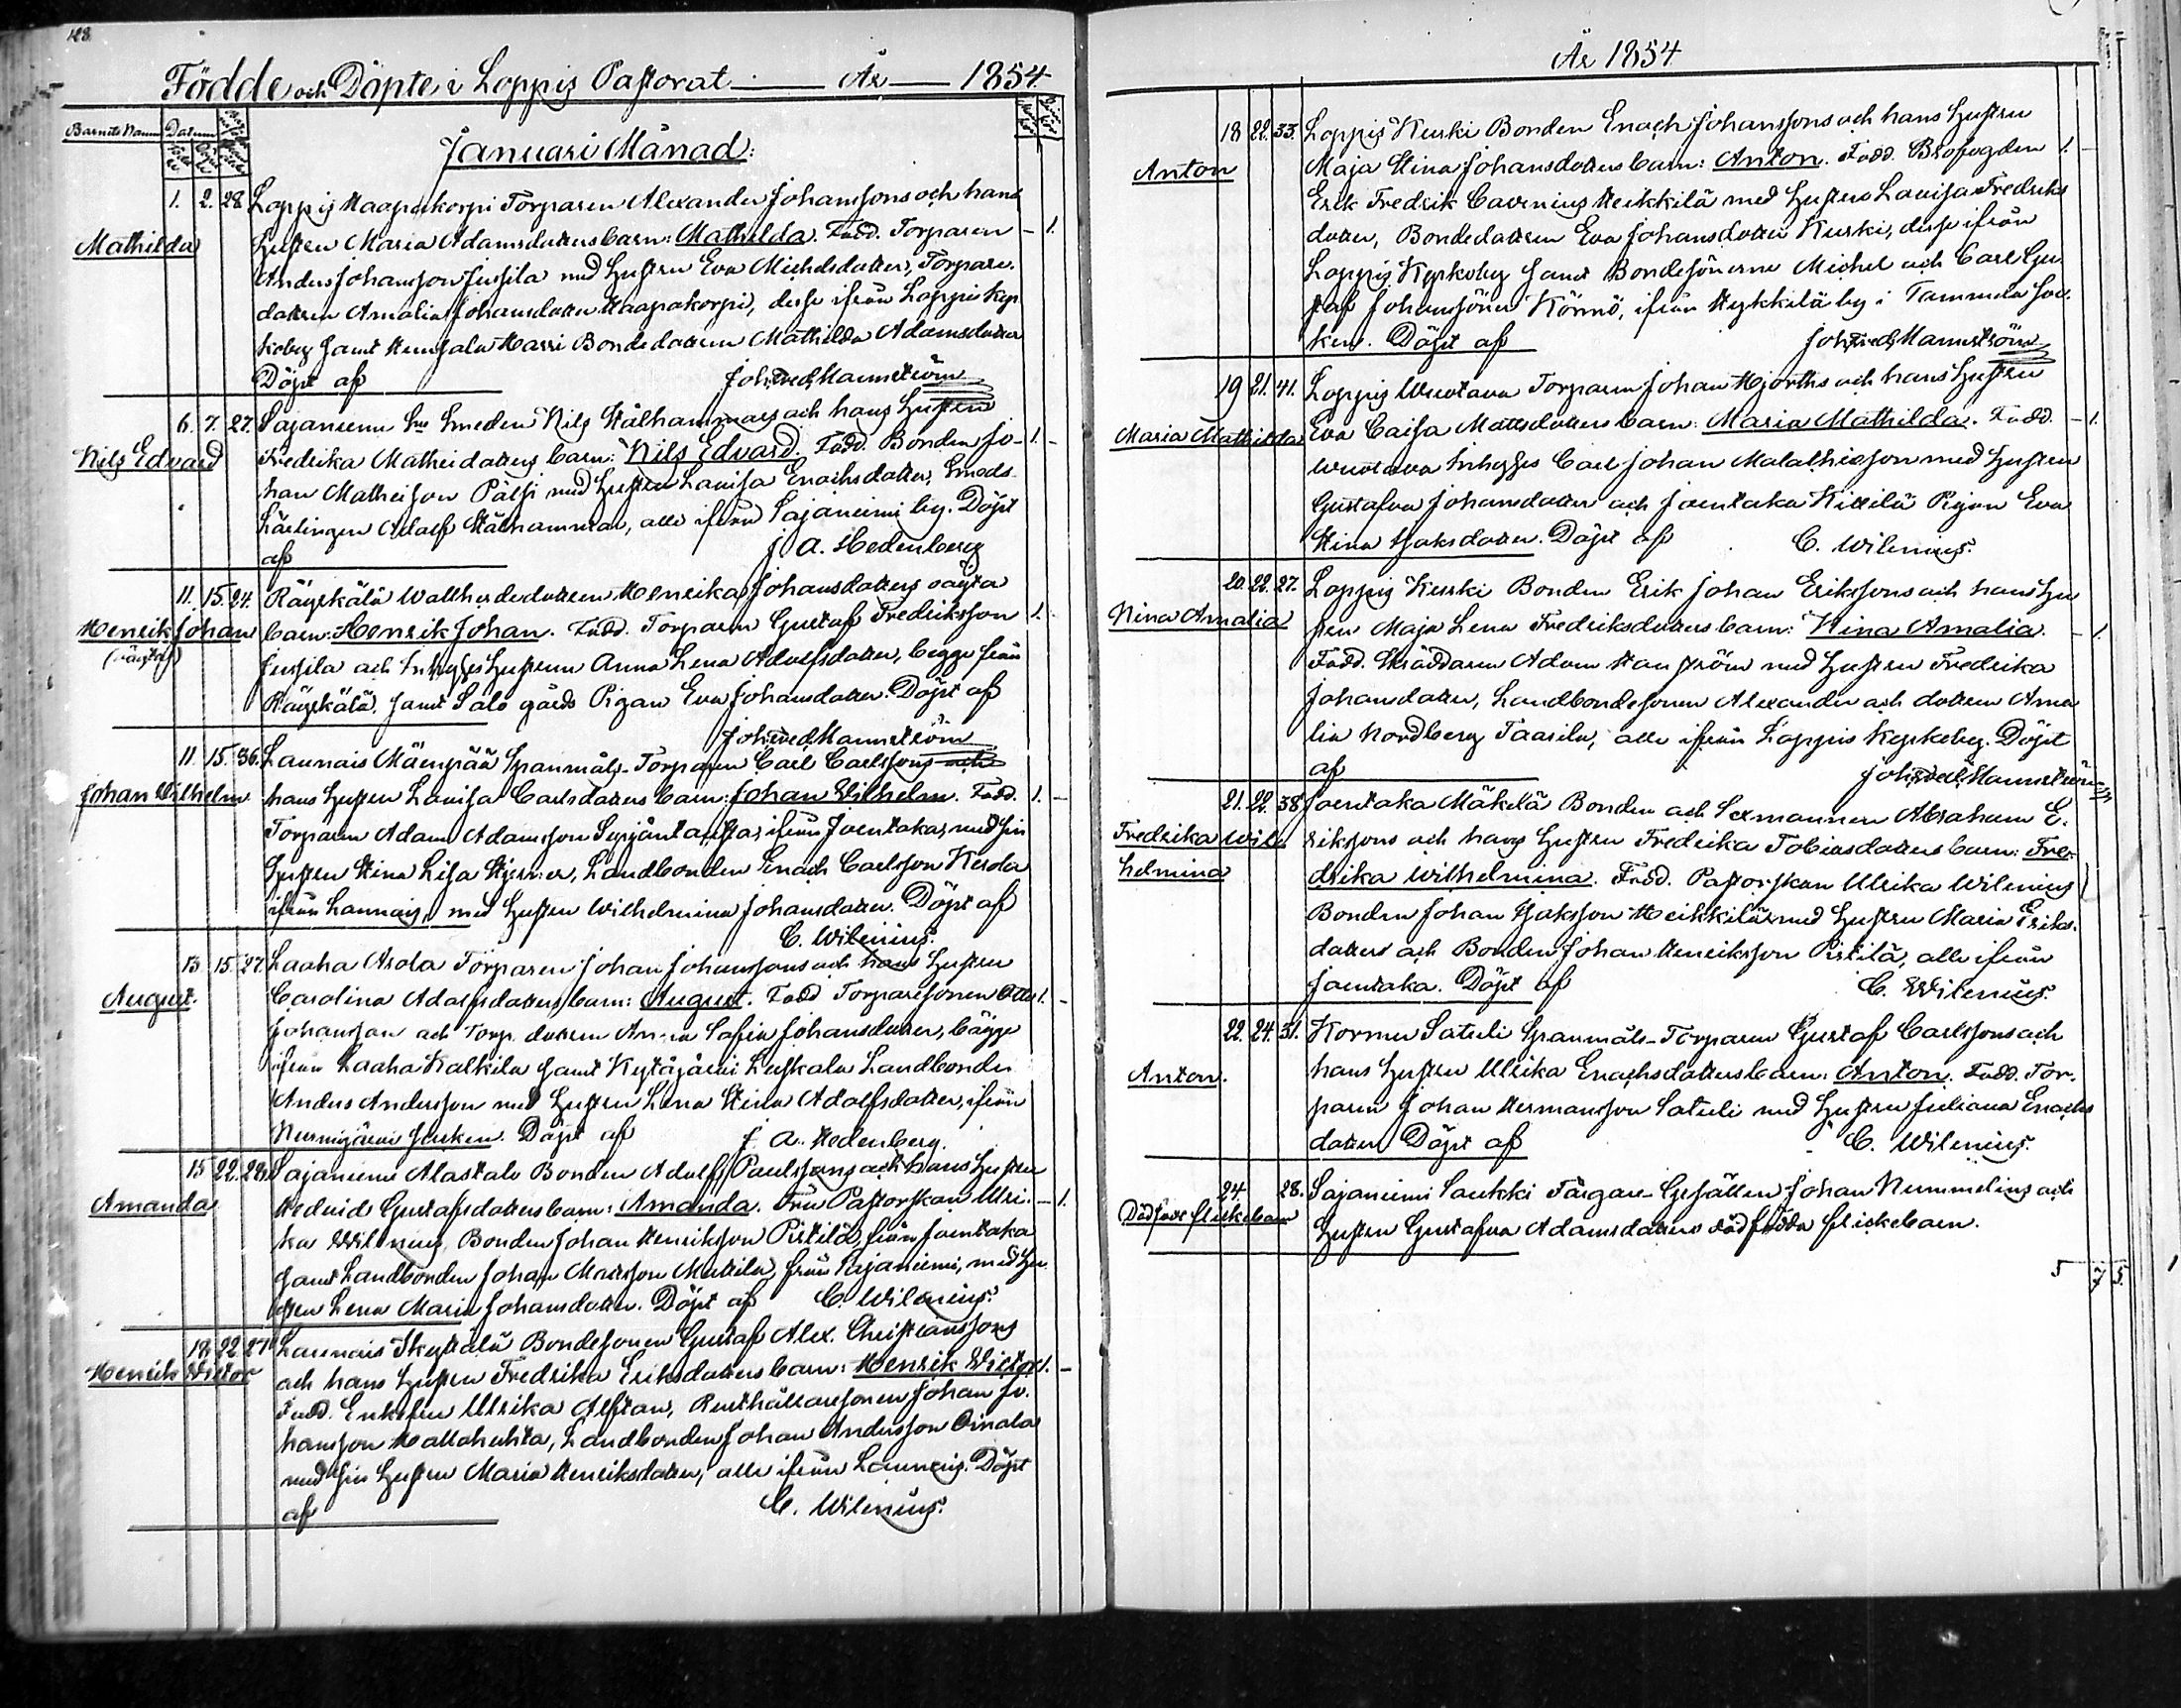 128.
Födde och Döpte i Loppis Pastorat — År — 1854.
Barnets Namn Datum
Januari Månad:
1. 2. 28. Loppis Haapakorpi Torparen Alexander Johanssons och hans
Mathilda Hustru Maria Adamsdotters barn: Mathilda. Fadd. Torparen — 1.
Anders Johansson Jussila med Hustru Eva Michelsdotter, Torpare-
dottren Amalia Johansdotter Haapakorpi, desse ifrån Loppis Kyr-
koby samt Hunsala Harri Bondedottren Mathilda Adamsdotter
Döpt af Joh. Fred. Mannström
6. 7. 27. Sajaniemi Smeden Nils Stålhammars och hans Hustru
Nils Edvard Fredrika Matheidotters barn: Nils Edvard. Fadd. Bonden Jo- 1. —
han Matheison Pälsi med Hustru Lovisa Enochsdotter, Smeds
Lärlingen Adolf Stålhammar, alle ifrån Sajaniemi by. Döpt
af J. A. Hedenberg
11. 15. 24. Räyskälä Wallhjonsdottren Henrika Johansdotters oägta
Henrik Johan barn: Henrik Johan. Fadd. Torparen Gustaf Fredriksson 1.
(oägta) Jussila och Inhyses Hustrun Anna Lena Adolfsdotter, begge från
Räyskälä, samt Salo gårds Pigan Eva Johansdotter. Döpt af
Joh. Fred. Mannström
11. 15. 36. Launais Mäenpää Spanmåls-Torparen Carl Carlssons och
Johan Wilhelm hans Hustru Lovisa Carlsdotters barn: Johan Wilhelm. Fadd. 1. —
Torparen Adam Adamsson ifrån Joentaka, med sin
Hustru Stina Lisa, Landbonden Enoch Carlsson Kerola
ifrån Launais, med Hustru Wilhelmina Johansdotter. Döpt af
C. Wilenius.
13. 15. 27. Laaha Arola Torparen Johan Johanssons och hans Hustru
August. Carolina Adolfsdotters barn: August. Fadd Torparesonen Otto 1. —
Johansson och Torp. dottren Anna Sofia Johansdotter, bägge
ifrån Laaha Kalkila samt Kytäjärvi Landbonden
Anders Andersson med Hustru Lena Stina Adolfsdotter, ifrån
Nurmijärvi Socken. Döpt af J. A. Hedenberg.
15. 22. 29. Sajaniemi Alastalo Bonden Adolf Paulssons och hans Hustru
Amanda Hedvid Gustafsdotters barn: Amanda. Fru Pastorskan Ulri- — 1.
ka Wilenius, Bonden Johan Henriksson Pietilä, från Joentaka
samt Landbonden Johan Mattsson Mattila, från Sajaniemi, med Hu-
stru Lena Maria Johansdotter. Döpt af C. Wilenius.
18. 22. 27. Launais Bondesonen Gustaf Alex. Christianssons
Henrik Wictor och hans Hustru Fredrika Eriksdotters barn: Henrik Wictor 1. —
Fadd. Enkefru Ulrika Alftan, Rusthållaresonen Johan Jo-
hansson Hallahuhta, Landbonden Johan Andersson Oinala
med sin Hustru Maria Henriksdotter, alle ifrån Launais. Döpt
af C. Wilenius.
År 1854
18 22. 33. Loppis Kurki Bonden Enoch Johanssons och hans Hustru
Anton Maja Stina Johansdotters barn: Anton. Fadd. Brofogden 1. —
Erik Fredrik Cavenius Heikkilä med Hustru Lovisa Fredriks
dotter, Bondedottren Eva Johansdotter Kurki, desse ifrån
Loppis Kyrkoby samt Bondesönerne Michel och Carl Gu-
staf Johanssöner Körmö, ifrån Hykkilä by i Tammela Soc-
ken. Döpt af Joh. Fred. Mannström
19 21. 41. Loppis Wuotava Torparen Johan Hjorths och hans Hustru
Maria Mathilda Eva Caisa Mattsdotters barn: Maria Mathilda. Fadd. — 1.
Wuotava Inhyses Carl Johan Malakiesson med Hustru
Gustafva Johansdotter och Joentaka Kittilä Pigan Eva
Stina Isaksdotter. Döpt af C. Wilenius.
20. 22. 27. Loppis Kurki Bonden Erik Johan Erikssons och hans Hu-
Nina Amalia stru Maja Lena Fredriksdotters barn: Nina Amalia. — 1.
Fadd. Skräddaren Adam Hanström med Hustru Fredrika
Johansdotter, Landbondesonen Alexander och dottren Ama
lia Nordberg Taasila, alle ifrån Loppis Kyrkoby. Döpt
af Joh. Fred. Mannström
21. 22. 38. Joentaka Mäkilä Bonden och Sexmannen Abraham E-
Fredrika Wil- rikssons och hans Hustru Fredrika Tobiasdotters barn: Fre-
helmina drika Wilhelmina. Fadd. Pastorskan Ulrika Wilenius
Bonden Johan Isaksson Heikkilä med Hustru Maria Eriks-
dotter och Bonden Johan Henriksson Pietilä, alle ifrån
Joentaka. Döpt af C. Wilenius.
22. 24. 31. Kormu Satuli Spanmåls-Torparen Gustaf Carlssons och
Anton. hans Hustru Ulrika Enochsdotters barn: Anton. Fadd. Tor-
paren Johan Hermansson Satuli med Hustru Juliana Enochs
dotter. Döpt af C. Wilenius.
24. 28. Sajaniemi Saukki Färgare-Gesällen Johan Nummelins och
Dödfödt flickebarn Hustru Gustafva Adamsdotters dödfödda flickebarn.
5 7 5